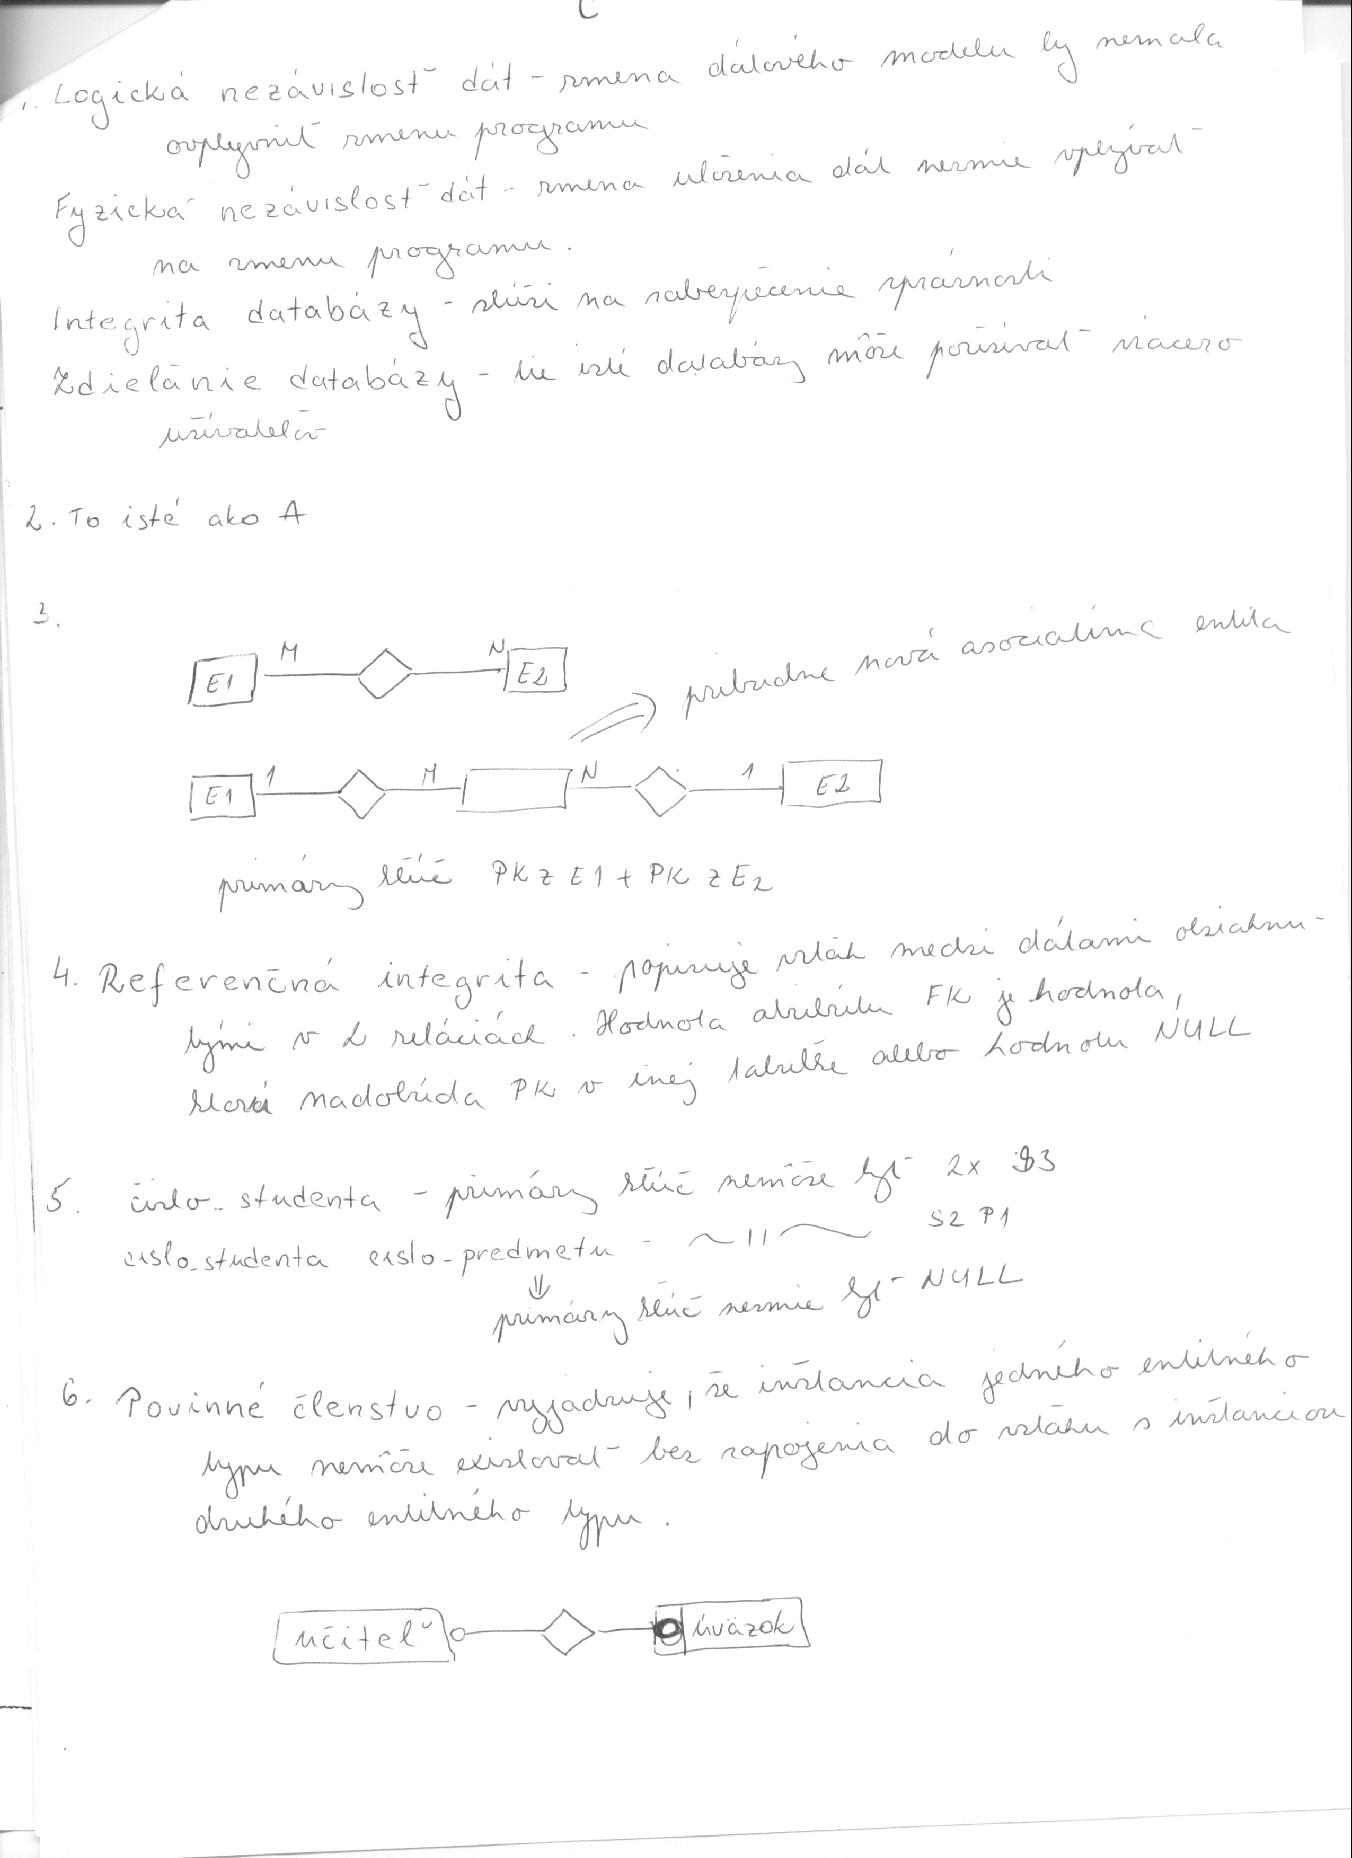 C
1. Logická nezávislosť dát - zmena dátového modelu by nemala
ovplyvniť zmenu programu
Fyzická nezávislosť dát - zmena uloženia dát nesmie vplývať
na zmenu programu.
Integrita databázy - slúži na zabezpečenie správnosti
Zdielánie databázy - tie isté databázy môže používať viacero
užívateľov
2. To isté ako A
3.
E1 M N E2
pribudne nová asociatívna entita
E1 1 M N 1 E2
primárny kľúč PK z E1 + PK z E2
4. Referenčná integrita - popisuje vzťah medzi dátami obsiahnu-
tými v 2 reláciách. Hodnota atribútu FK je hodnota,
ktorú nadobúda PK v inej tabuľke alebo hodnotu NULL
5. číslo_studenta - primárny kľúč nemôže byť 2x S3
cislo_studenta cislo_predmetu - ~ 11 ~ S2 P1
⇓
primárny kľúč nesmie byť NULL
6. Povinné členstvo - vyjadruje, že inštancia jedného entitného
typu nemôže existovať bez zapojenia do vzťahu s inštanciou
druhého entitného typu.
učiteľ úväzok